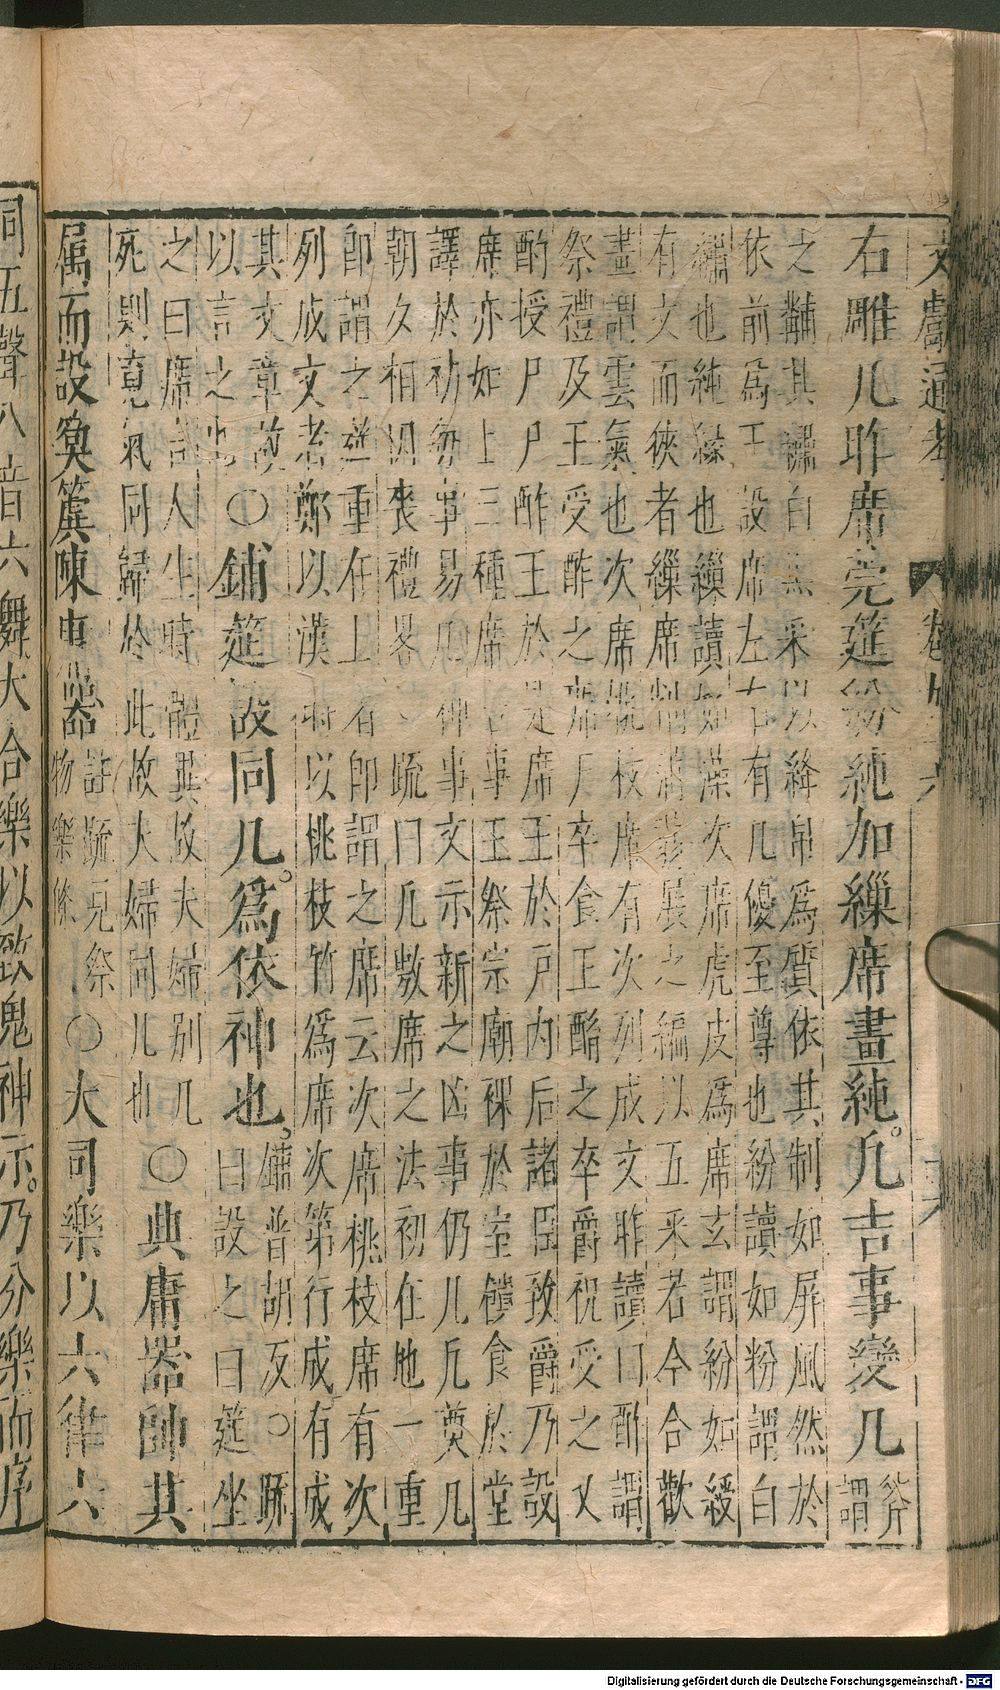 文獻通考 卷九十六 十六
右雕几昨席莞筵紛純加繅席畫純。凡吉事變几 斧謂
之黼其繡白黑采以絳帛為質依其制如屏風然於
依前為王設席左右有几優至尊也紛讀如粉謂白
繡也純緣也繅讀如藻次席虎皮為席玄謂紛如綬
有文而狹者繅席削蒲蒻展之編以五采若今合歡
畫謂雲氣也次席桃枝席有次列成文昨讀曰酢謂
祭禮及王受酢之席尸卒食王酳之卒爵祝受之又
酌授尸尸酢王於是席王於戶內后諸臣致爵乃設
席亦如上三種席 事王祭宗廟祼於室饋食於堂
譯於祊每事易几神事文示新之凶事仍几凡奠几
朝夕相因喪禮畧 疏曰凡敷席之法初在地一重
即謂之筵重在上者即謂之席云次席桃枝席有次
列成文者鄭以漢時以桃枝竹為席次第行成有成
其文章故
以言之也○鋪筵設同几。為依神也。 鋪普胡反○疏
曰設之曰筵坐
之曰席言人生時體異故夫婦別几
死則䰟氣同歸於此故大婦同几也○典庸器帥其
屬而設筍簴陳庸器 詳疏見祭
物樂條 ○大司樂以六律六
同五聲八音六舞大合樂以致鬼神示。乃分樂而序
Digitalisierung gefördert durch die Deutsche Forschungsgemeinschaft - DFG